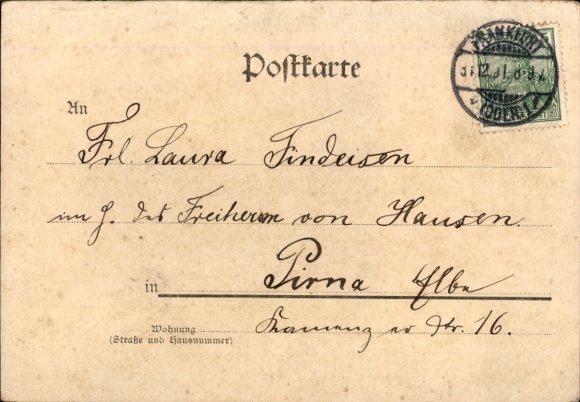 Postkarte
FRANKFURT
31.12.01. 8-9
(ODER) 1
An
Frl. Laura Findeisen
im H. des Freiherrn von Hausen.
in Pirna Elbe
Wohnung
(Straße und Hausnummer)
Kamenzer Str. 16.